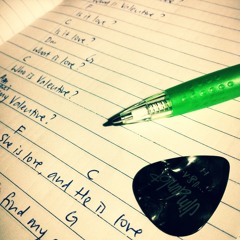 C
Is it love?
C
Is it love?
Dm
What is love? G
C
Who is Valentine?
my Valentine?
F C
She is love, and He is love
G
find my